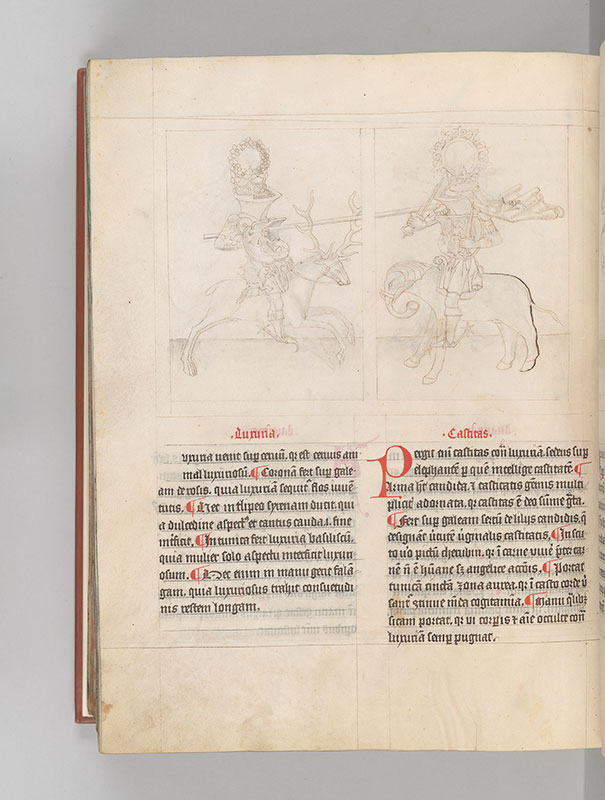 ·Luxuria·
uxuria uenit sup ceruū, qr est ceruus ani
mal luxuriosū. ¶ Coronā fert sup gale
am de rosis. quia luxuriam sequit̄ flos iuuē
tutis. ¶ Hec in clipeo syrenam ducit. qui
a dulcedine aspect᷒ et cantus cauda ī fine
inficit. ¶ In tunica fert luxuria basiliscū.
quia mulier solo aspectu interficit luxuri
osum. ¶ Hec enim in manu gerit falan
gam. quia luxuriosus trahit consuetudi
nis vestem longam.
·Castitas·
Pergit aūt castitas cont᷑ luxuriā. sedens sup
elephantē p quē intellige castitatē. ¶
Arma hꝫ candida. ⁊ castitatis gēmis multi
plicit᷑ adornata, qr castitas ē deo sūme gta.
¶ Fert sup galeam sertū de liliis candidis. q̄
designāt uirtutē uirginalis castitatis. ¶ In scu
to uō pictū cherubin. qr ī carne uiuē pter car
nē nō ē hūane sꝫ angelice accōis. ¶ Portat
tunicā cinctā zona aurea. qr ī casto corde
cogitamina. ¶ Manu
sicam portat. qr ui corpis ⁊ aīe occulte cont᷑
luxuriam semp pugnat.